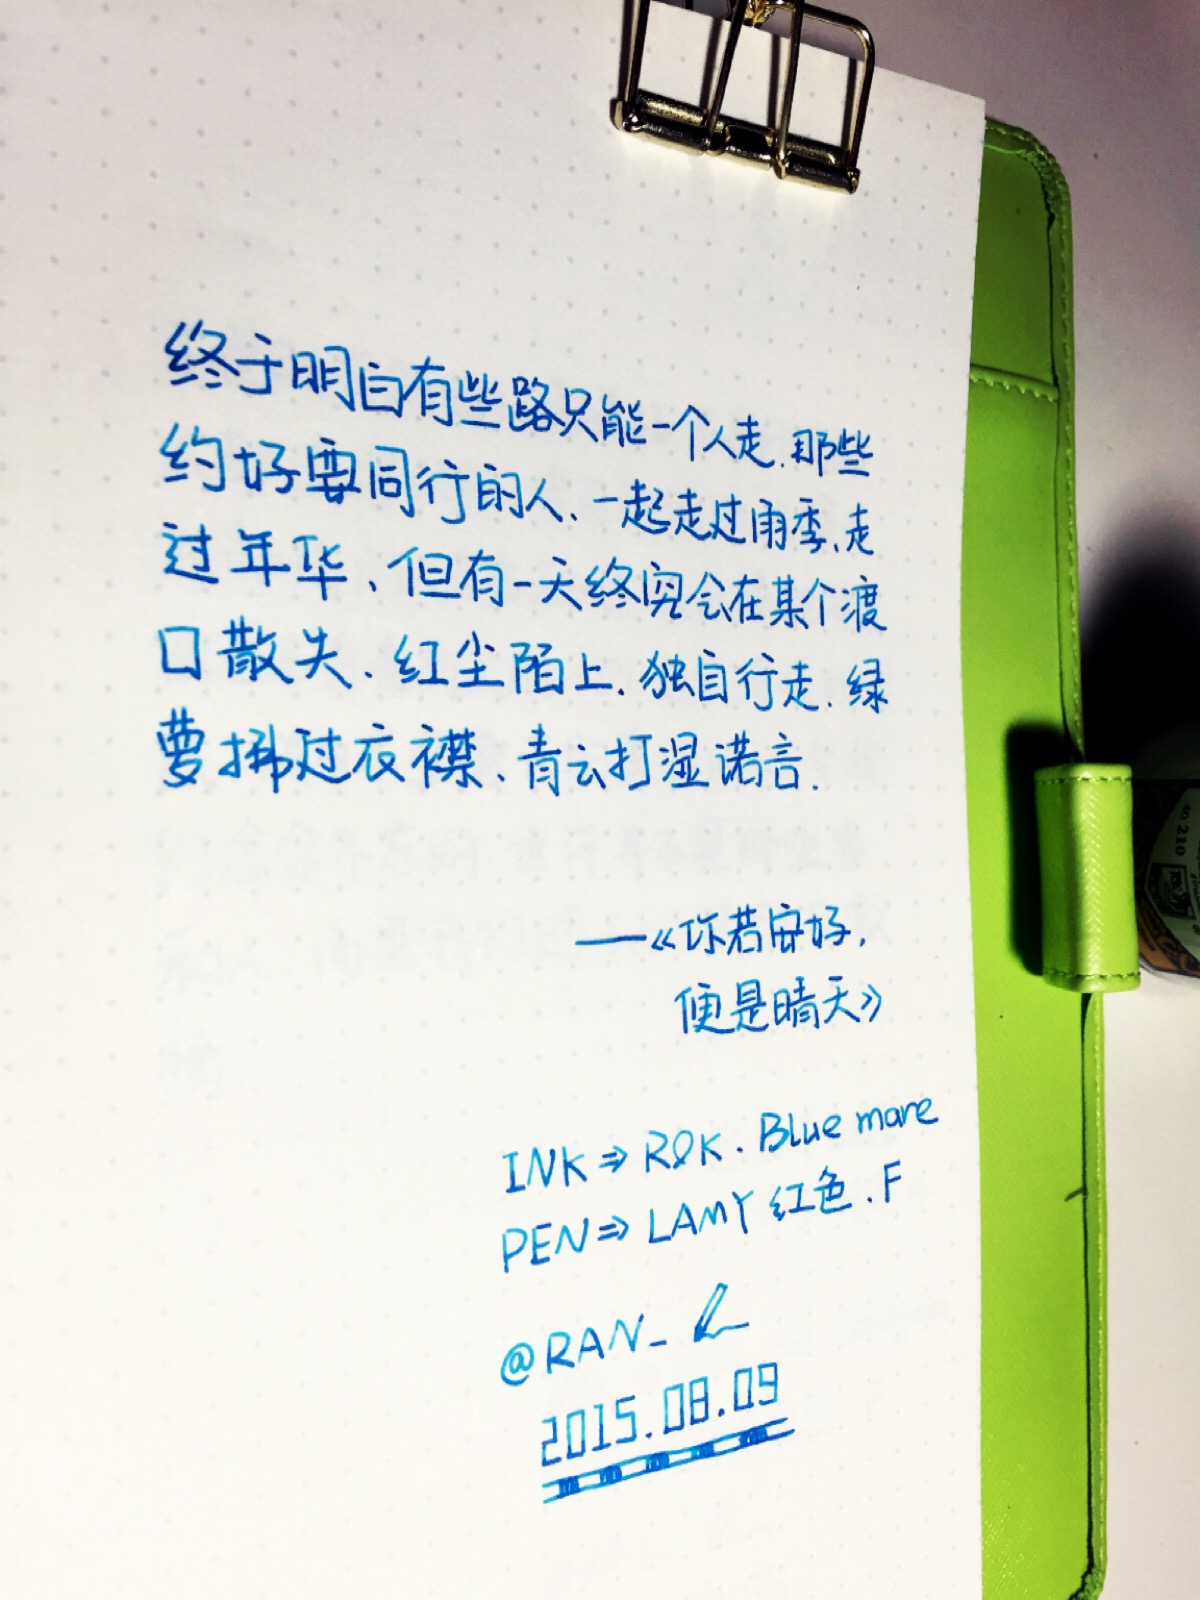 终于明白有些路只能一个人走.那些
约好要同行的人、一起走过雨季、走
过年华、但有一天终究会在某个渡
口散失、红尘陌上、独自行走.绿
萝拂过衣襟、青云打湿诺言.
——《你若安好,
便是晴天》
INK⇒R&K.Blue mare
PEN⇒LAMY红色.F
@RAN_
2015.08.09
210